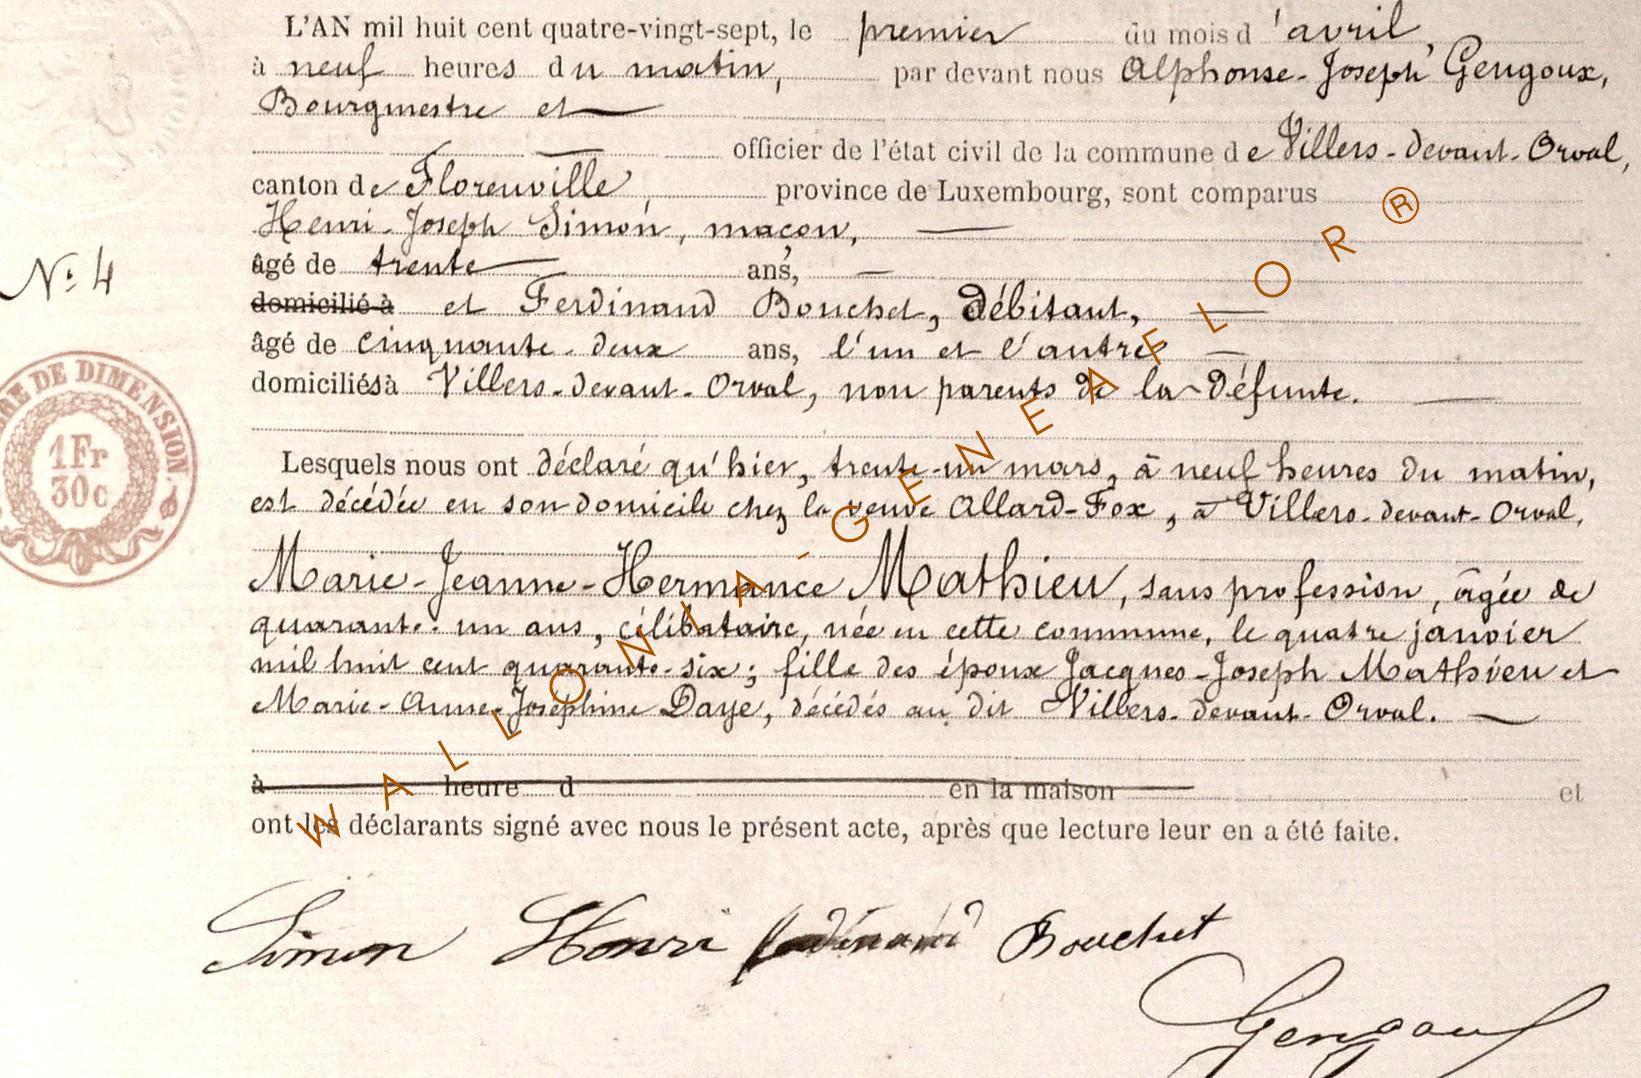 L'AN mil huit cent quatre-vingt-sept, le premier du mois d'avril,
à neuf heures du matin, par devant nous Alphonse-Joseph Gengoux,
Bourgmestre et
officier de l'état civil de la commune de Villers-devant-Orval,
canton de Florenville, province de Luxembourg, sont comparus
Henri-Joseph Simon, maçon,
N° 4
âgé de trente ans,
domicilié à et Ferdinand Bouchet, débitant,
âgé de cinquante-deux ans, l'un et l'autre
domiciliés à Villers-devant-Orval, non parents de la défunte.
DE DIMENSION
1 Fr
30c
Lesquels nous ont déclaré qu'hier, trente-un mars, à neuf heures du matin,
est décédée en son domicile chez la veuve Allard-Fox, à Villers-devant-Orval,
Marie-Jeanne-Hermance Mathieu, sans profession, âgée de
quarante-un ans, célibataire, née en cette commune, le quatre janvier
mil huit cent quarante-six; fille des époux Jacques-Joseph Mathieu et
Marie-Anne-Joséphine Daye, décédés au dit Villers-devant-Orval.
à heure d en la maison et
ont les déclarants signé avec nous le présent acte, après que lecture leur en a été faite.
Simon Henri ferdinand Bouchet
Gengoux
WALLONIA-GENEAFLOR®